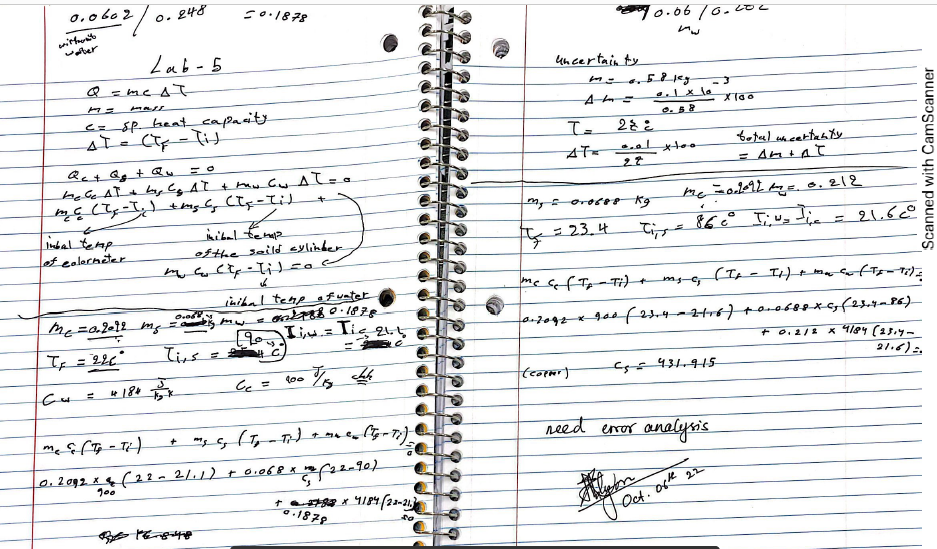 0.0602 / 0.248 = 0.1878
without water
Lab - 5
Q = mc ΔT
m = mass
c = sp heat capacity
ΔT = (Tf - Ti)
Qc + Qs + Qw = 0
mc Cc ΔT + ms Cs ΔT + mw Cw ΔT = 0
mc Cc (Tf - Ti) + ms Cs (Tf - Ti) +
inital temp of colormeter
inital temp of the soild cylinder
mw Cw (Tf - Ti) = 0
inital temp of water
mc = 0.2092 ms = 0.068 mw = 0.1878
Tf = 22c° Ti,s = 90 Ti,w = Tic = 21.1 c
Cw = 4184 J/kg k Cc = 900 J/kg
mc Cc (Tf - Ti) + ms Cs (Tf - Ti) + mw Cw (Tf - Ti) = 0
0.2092 × 900 (22 - 21.1) + 0.068 × Cs (22 - 90)
+ 0.1878 × 4184 (22 - 21.
= 0
mw
uncertainty
m = 0.58 kg
Δm = 0.1 × 10 -3 / 0.58 × 100
T =
ΔT = 0.01 / × 100
total uncertainty
= Δm + ΔT
ms = 0.0688 kg mc = 0.2092 mw = 0.212
Tf = 23.4 Ti,s = 86 c° Ti,w = Ti,c = 21.6 c°
mc Cc (Tf - Ti) + ms Cs (Tf - Ti) + mw Cw (Tf - Ti) =
0.2092 × 900 (23.4 - 21.6) + 0.0688 × Cs (23.4 - 86)
+ 0.212 × 4184 (23.4 -
21.6) =
(copper) Cs = 431.915
need error analysis
Oct. 06th 22
Scanned with CamScanner